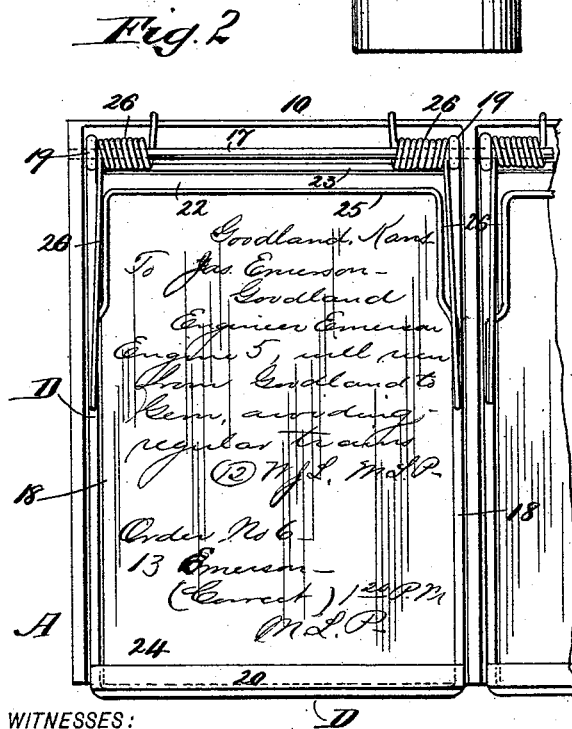 Fig. 2
26 10 26 19
19 17
23
22 25
Goodland, Kans.
26 26
To Jas. Emerson-
Goodland
Engineer Emerson
Engine 5, will run
D from Goodland to
Gem, avoiding-
regular trains
18 (12) N.J.L. M.L.P. 18
Order No 6-
13 Emerson-
(Correct) 1 20 P.M
A M.L.P-
24
20
WITNESSES: D